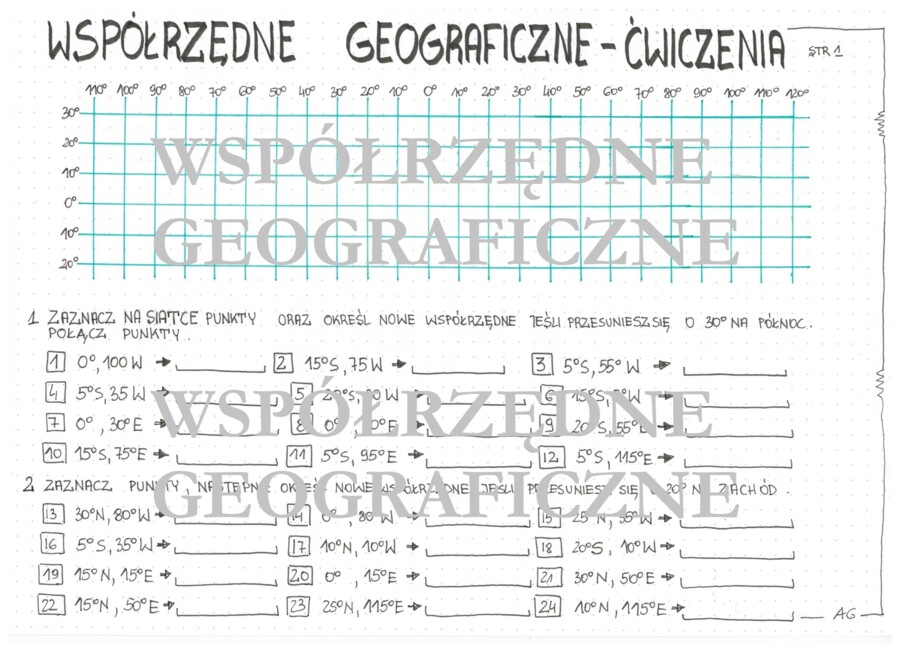 WSPÓŁRZĘDNE GEOGRAFICZNE - ĆWICZENIA STR 1
110° 100° 90° 80° 70° 60° 50° 40° 30° 20° 10° 0° 10° 20° 30° 40° 50° 60° 70° 80° 90° 100° 110° 120°
30°
20°
10°
0°
10°
20°
WSPÓŁRZĘDNE
GEOGRAFICZNE
1 ZAZNACZ NA SIATCE PUNKTY ORAZ OKREŚL NOWE WSPÓŁRZĘDNE JEŚLI PRZESUNIESZ SIĘ O 30° NA PÓŁNOC.
POŁĄCZ PUNKTY.
1 0°, 100W → 2 15°S, 75W → 3 5°S, 55°W →
4 5°S, 35W → 5 6
7 0°, 30°E → 8 0°, 9 20°S, 55°
10 15°S, 75°E → 11 5°S, 95°E → 12 5°S, 115°E →
WSPÓŁRZĘDNE
GEOGRAFICZNE
2 ZAZNACZ PUNKTY, NASTĘPNIE OKREŚL NOWE WSPÓŁRZĘDNE JEŚLI PRZESUNIESZ SIĘ O 20° NA ZACHÓD.
13 30°N, 80°W → 14 0°, 80°W → 15 25°N, 55°W →
16 5°S, 35°W → 17 10°N, 10°W → 18 20°S, 10°W →
19 15°N, 15°E → 20 0°, 15°E → 21 30°N, 50°E →
22 15°N, 50°E → 23 25°N, 115°E → 24 10°N, 115°E →
AG